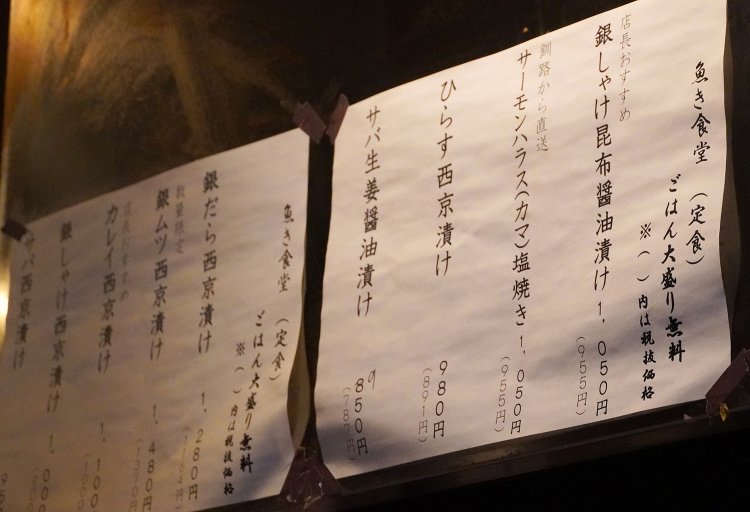 魚き食堂（定食）
ごはん大盛り無料
※（　）内は税抜価格
店長おすすめ
銀しゃけ昆布醤油漬け 1,050円
(955円)
釧路から直送
サーモンハラス(カマ)塩焼き 1,050円
(955円)
ひらす西京漬け 980円
(891円)
サバ生姜醤油漬け 850円
魚き食堂（定食）
ごはん大盛り無料
※（　）内は税抜価格
銀だら西京漬け 1,280円
(1164円)
数量限定
銀ムツ西京漬け 1,480円
店長おすすめ
カレイ西京漬け 1,100
銀しゃけ西京漬け 1,00
サバ西京漬け